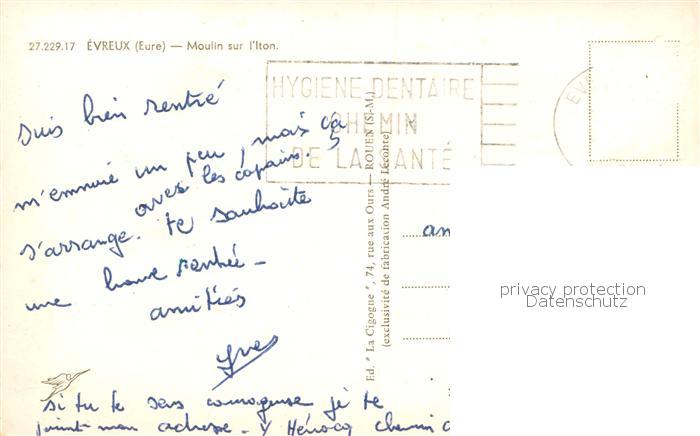 27.229.17 ÉVREUX (Eure) — Moulin sur l'Iton.
HYGIENE DENTAIRE
CHEMIN
DE LA SANTÉ
EV
suis bien rentré
m'ennuie un peu, mais ça
s'arrange avec les copains.
te souhaite
une bonne rentrée -
amitiés
Yves
si tu te sens courageuse je te
joint mon adresse - Y Hérocq chemin
Ed. "La Cigogne", 74, rue aux Ours — ROUEN (S.-M.)
(exclusivité de fabrication André Leconte)
an
privacy protection
Datenschutz